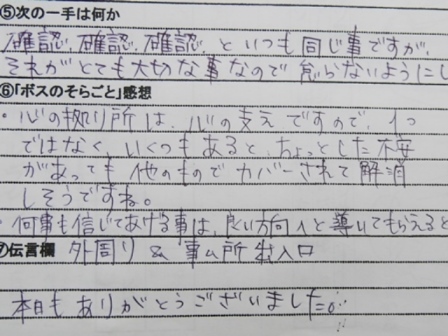 ⑤次の一手は何か
確認、確認、確認、といつも同じ事ですが、
それがとても大切な事なので怠らないようにし
⑥「ボスのそらごと」感想
・心の拠り所は、心の支えですので、1つ
ではなく、いくつもあると、ちょっとした不安
があっても他のものでカバーされて解消
しそうですね。
・何事も信じてあげる事は、良い方向へと導いてもらえると
⑦伝言欄 外周り & 事ム所出入口
本日もありがとうございました。